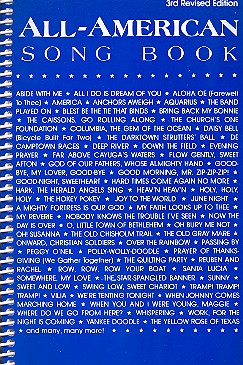 3rd Revised Edition
ALL-AMERICAN
SONG BOOK
ABIDE WITH ME ★ ALL I DO IS DREAM OF YOU ★ ALOHA OE (Farewell
To Thee) ★ AMERICA ★ ANCHORS AWEIGH ★ AQUARIUS ★ THE BAND
PLAYED ON ★ BLEST BE THE TIE THAT BINDS ★ THE BRAVE
★ THE CAISSONS, GO ROLLING ALONG ★ THE CHURCH'S ONE
FOUNDATION ★ COLUMBIA, THE GEM OF THE OCEAN ★ DAISY BELL
(Bicycle Built For Two) ★ THE DARKTOWN STRUTTERS' BALL ★ DE
CAMPTOWN RACES ★ DEEP RIVER ★ DOWN THE FIELD ★ EVENING
PRAYER ★ FAR ABOVE CAYUGA'S WATERS ★ FLOW GENTLY, SWEET
AFTON ★ GOD OF OUR FATHERS, WHOSE ALMIGHTY HAND ★ GOOD-
BYE, MY LOVER, GOOD-BYE ★ GOOD MORNING, MR. ZIP-ZIP-ZIP! ★
GOOD NIGHT, SWEETHEART ★ HARD TIMES COME AGAIN NO MORE ★
HARK, THE HERALD ANGELS SING ★ HEAV'N HEAV'N ★ HOLY, HOLY,
HOLY ★ THE HOKEY POKEY ★ JOY TO THE WORLD ★ JUNE NIGHT ★
A MIGHTY FORTRESS IS OUR GOD ★ MY FAITH LOOKS UP TO THEE ★
MY REVERIE ★ NOBODY KNOWS THE TROUBLE I'VE SEEN ★ NOW THE
DAY IS OVER ★ O, LITTLE TOWN OF BETHLEHEM ★ OH BURY ME NOT ★
OH SUSANNA ★ THE OLD CHISHOLM TRAIL ★ THE OLD GRAY MARE ★
ONWARD, CHRISTIAN SOLDIERS ★ OVER THE RAINBOW ★ PASSING BY
★ PEGGY O'NEIL ★ POLLY-WOLLY-DOODLE ★ PRAYER OF THANKS-
GIVING (We Gather Together) ★ THE QUILTING PARTY ★ REUBEN AND
RACHEL ★ ROW, ROW, ROW YOUR BOAT ★ SANTA LUCIA ★
SOMEWHERE, MY LOVE ★ THE STAR-SPANGLED BANNER ★ SUNNY ★
SWEET AND LOW ★ SWING LOW, SWEET CHARIOT ★ TRAMP! TRAMP!
TRAMP! ★ VILIA ★ WE'RE TENTING TONIGHT ★ WHEN JOHNNY COMES
MARCHING HOME ★ WHEN YOU AND I WERE YOUNG, MAGGIE ★
WHERE DO WE GO FROM HERE? ★ WHISPERING ★ WORK, FOR THE
NIGHT IS COMING ★ YANKEE DOODLE ★ THE YELLOW ROSE OF TEXAS
★ and many, many more!